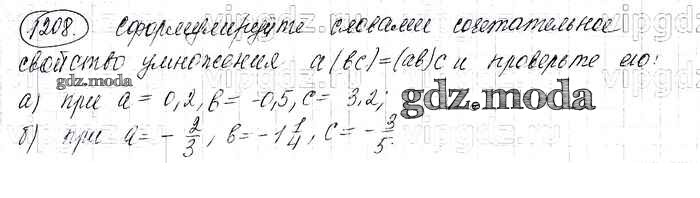 1208. Сформулируйте словами сочетательное
свойство умножения a(bc)=(ab)c и проверьте его:
gdz.moda
а) при a = 0,2, b = -0,5, c = 3,2;
gdz.moda
б) при a = - 2/3, b = -1 1/4, c = - 3/5